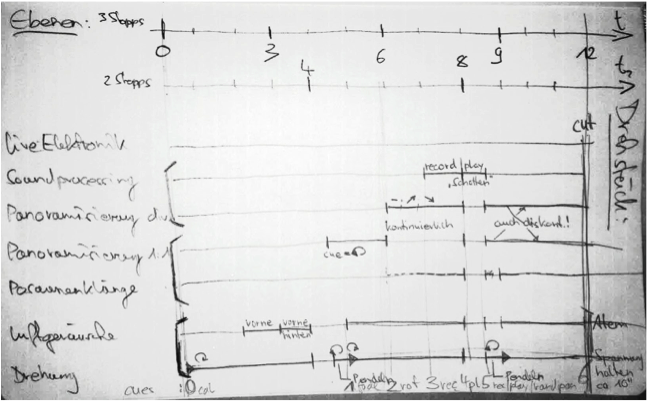 Ebenen: 3 Stopps
t
0 3 6 9 12
4 8
t
2 Stopps
Drehstück:
cut
Live Elektronik
record play
Soundprocessing
"Schatten"
Panoramisierung
kontinuierlich
auch diskont.!
Panoramisierung 1:1
cue
Posaunenklänge
vorne vorne
hinten
Luftgeräusche
Atem
Drehung
Spannung
halten
ca 10"
cues 0 col 1 Pendeln 2 rot 3 rec 4 pl 5 Pendeln